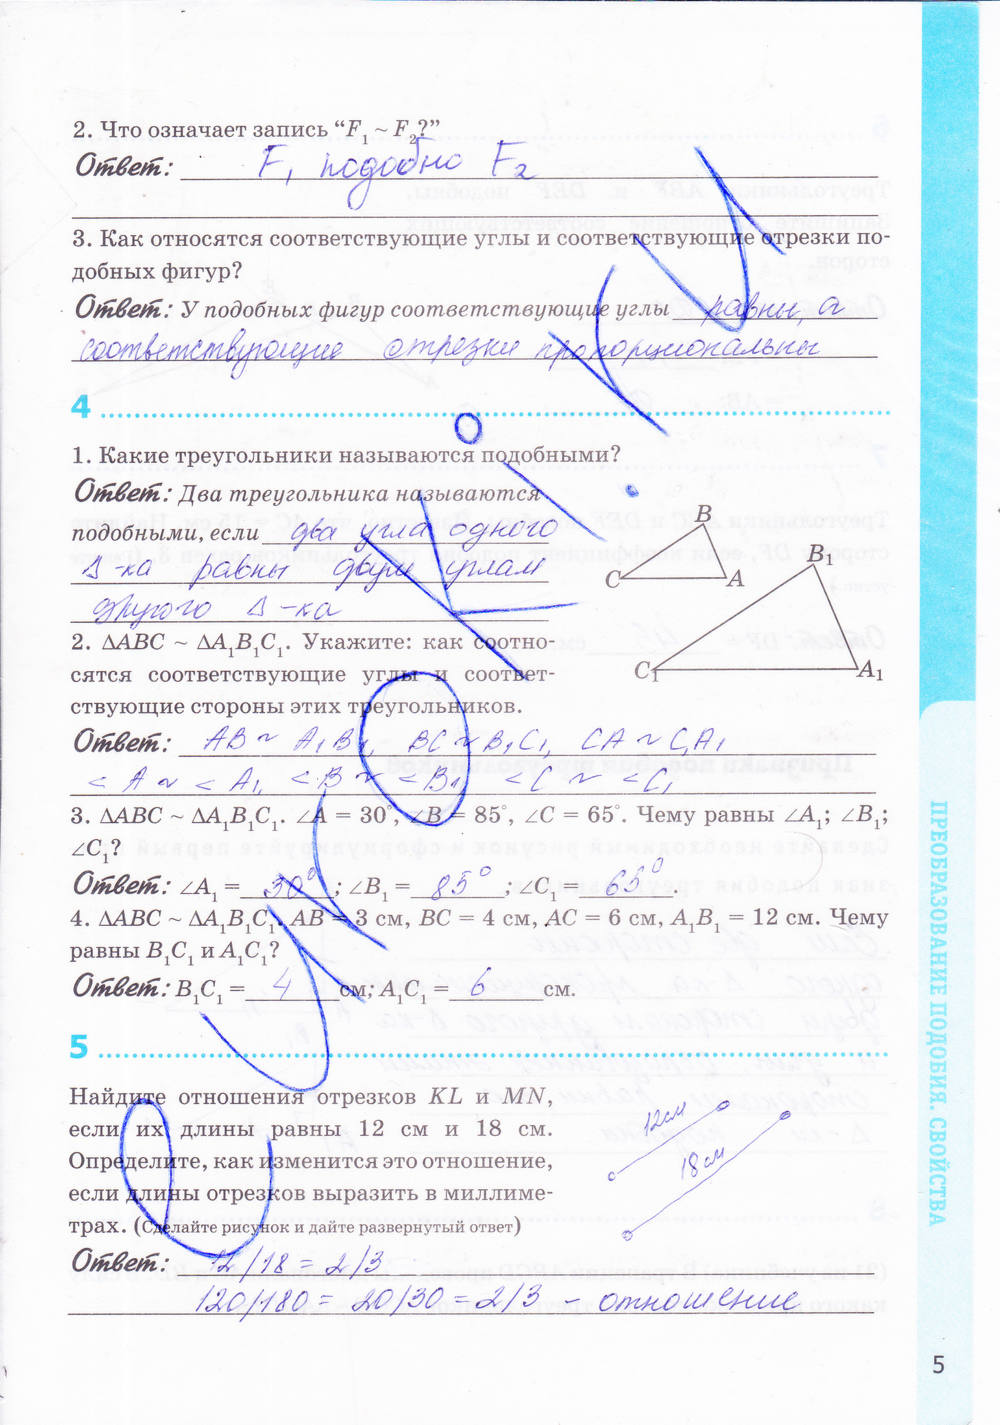 2. Что означает запись “F₁ ~ F₂?”
Ответ: F₁ подобно F₂
3. Как относятся соответствующие углы и соответствующие отрезки по-
добных фигур?
Ответ: У подобных фигур соответствующие углы равны, а
соответствующие отрезки пропорциональны
4
1. Какие треугольники называются подобными?
Ответ: Два треугольника называются
подобными, если два угла одного
Δ-ка равны двум углам
другого Δ-ка
B
C
A
B₁
C₁
A₁
2. ΔABC ~ ΔA₁B₁C₁. Укажите: как соотно-
сятся соответствующие углы и соответ-
ствующие стороны этих треугольников.
Ответ: AB ~ A₁B₁, BC ~ B₁C₁, CA ~ C₁A₁
<A ~ <A₁, <B ~ <B₁ <C ~ <C₁
3. ΔABC ~ ΔA₁B₁C₁. ∠A = 30°, ∠B = 85°, ∠C = 65°. Чему равны ∠A₁; ∠B₁;
∠C₁?
Ответ: ∠A₁ = 30°; ∠B₁ = 85°; ∠C₁ = 65°
4. ΔABC ~ ΔA₁B₁C₁. AB = 3 см, BC = 4 см, AC = 6 см, A₁B₁ = 12 см. Чему
равны B₁C₁ и A₁C₁?
Ответ: B₁C₁ = 4 см; A₁C₁ = 6 см.
5
Найдите отношения отрезков KL и MN,
если их длины равны 12 см и 18 см.
Определите, как изменится это отношение,
если длины отрезков выразить в миллиме-
трах. (Сделайте рисунок и дайте развернутый ответ)
12см
18см
Ответ: 12/18 = 2/3
120/180 = 20/30 = 2/3 – отношение
ПРЕОБРАЗОВАНИЕ ПОДОБИЯ. СВОЙСТВА
5